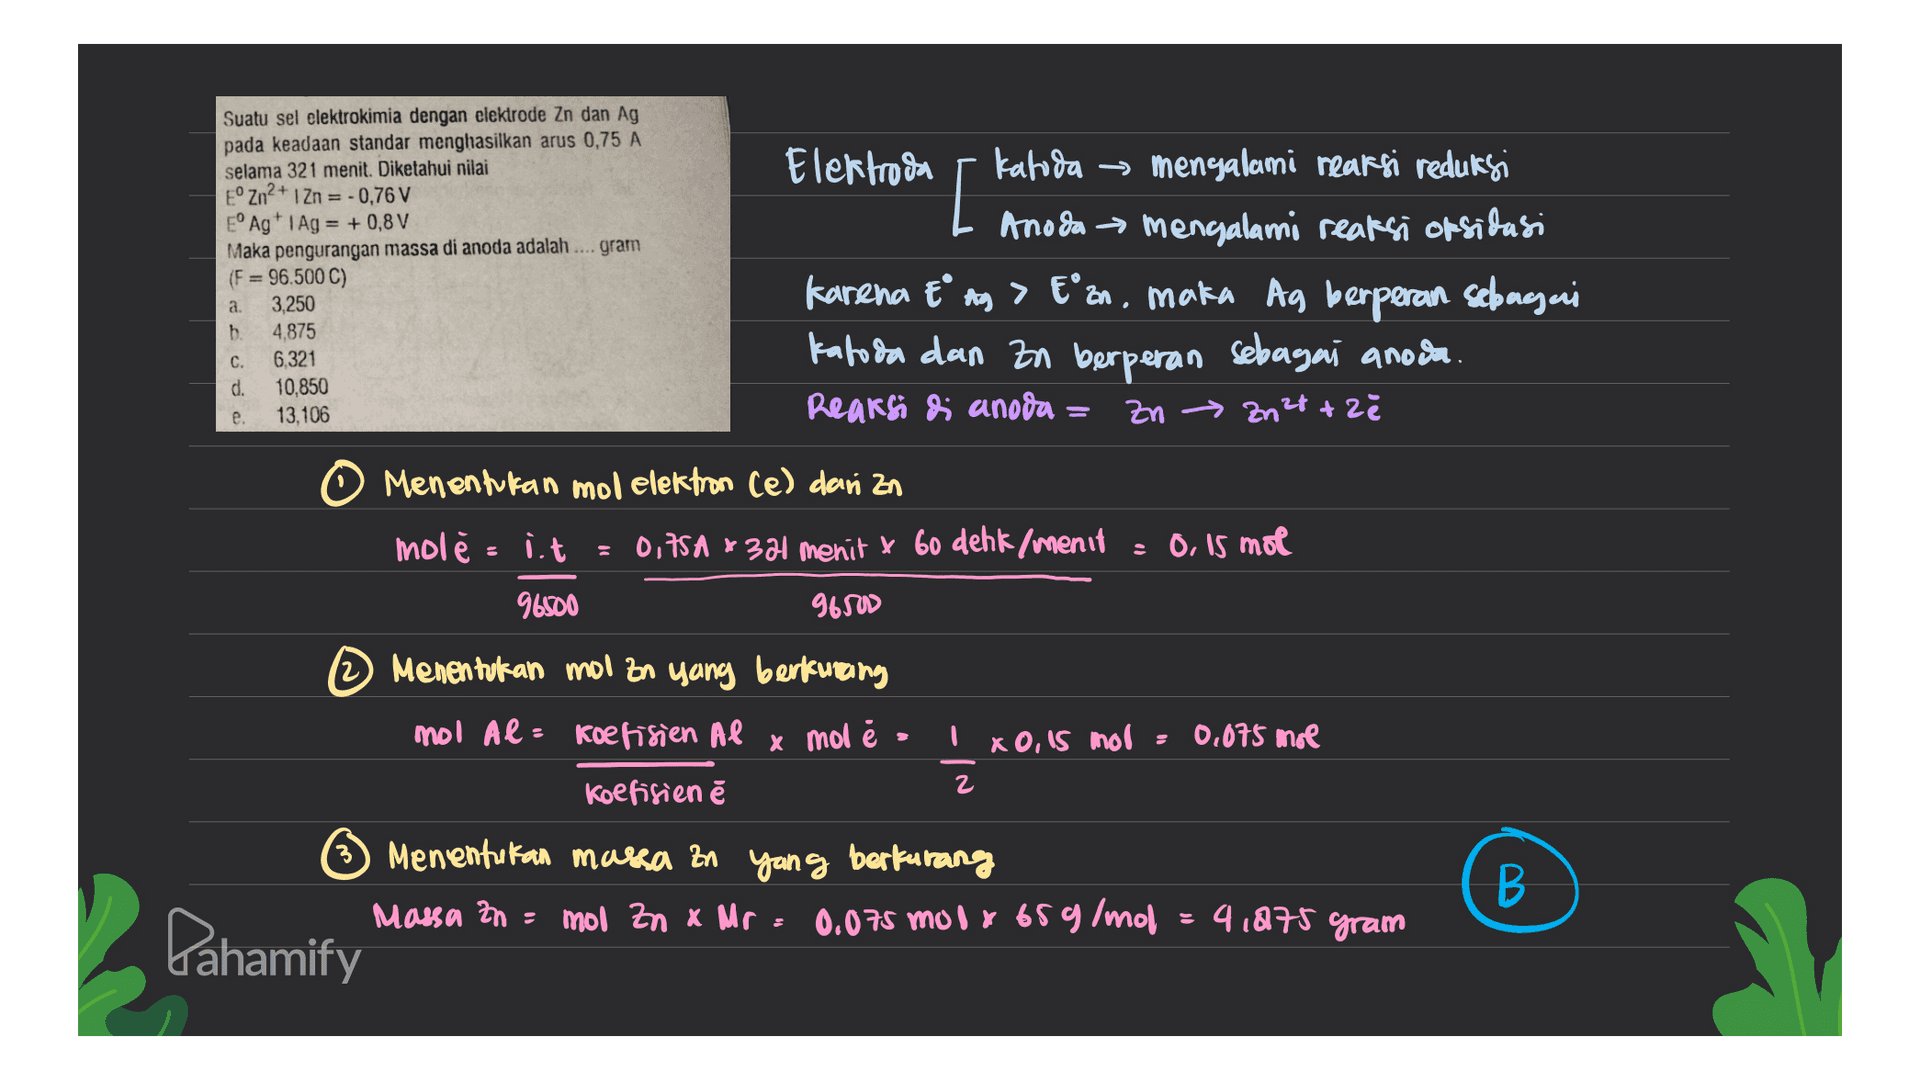 Suatu sel elektrokimia dengan elektrode Zn dan Ag
pada keadaan standar menghasilkan arus 0,75 A
selama 321 menit. Diketahui nilai
E° Zn²⁺ | Zn = - 0,76 V
E° Ag⁺ | Ag = + 0,8 V
Maka pengurangan massa di anoda adalah .... gram
(F = 96.500 C)
a. 3,250
b. 4,875
c. 6,321
d. 10,850
e. 13,106
Elektroda
Katoda → mengalami reaksi reduksi
Anoda → mengalami reaksi oksidasi
karena E° Ag > E° Zn, maka Ag berperan sebagai
katoda dan Zn berperan sebagai anoda.
Reaksi di anoda = Zn → Zn²⁺ + 2ē
① Menentukan mol elektron (e) dari Zn
mol ē = i.t = 0,75A x 321 menit x 60 detik/menit = 0,15 mol
96500 96500
② Menentukan mol Zn yang berkurang
mol Al = koefisien Al x mol ē = 1 x 0,15 mol = 0,075 mol
koefisien ē 2
③ Menentukan massa Zn yang berkurang
Massa Zn = mol Zn x Mr = 0,075 mol x 65 g/mol = 4,875 gram
B
Pahamify